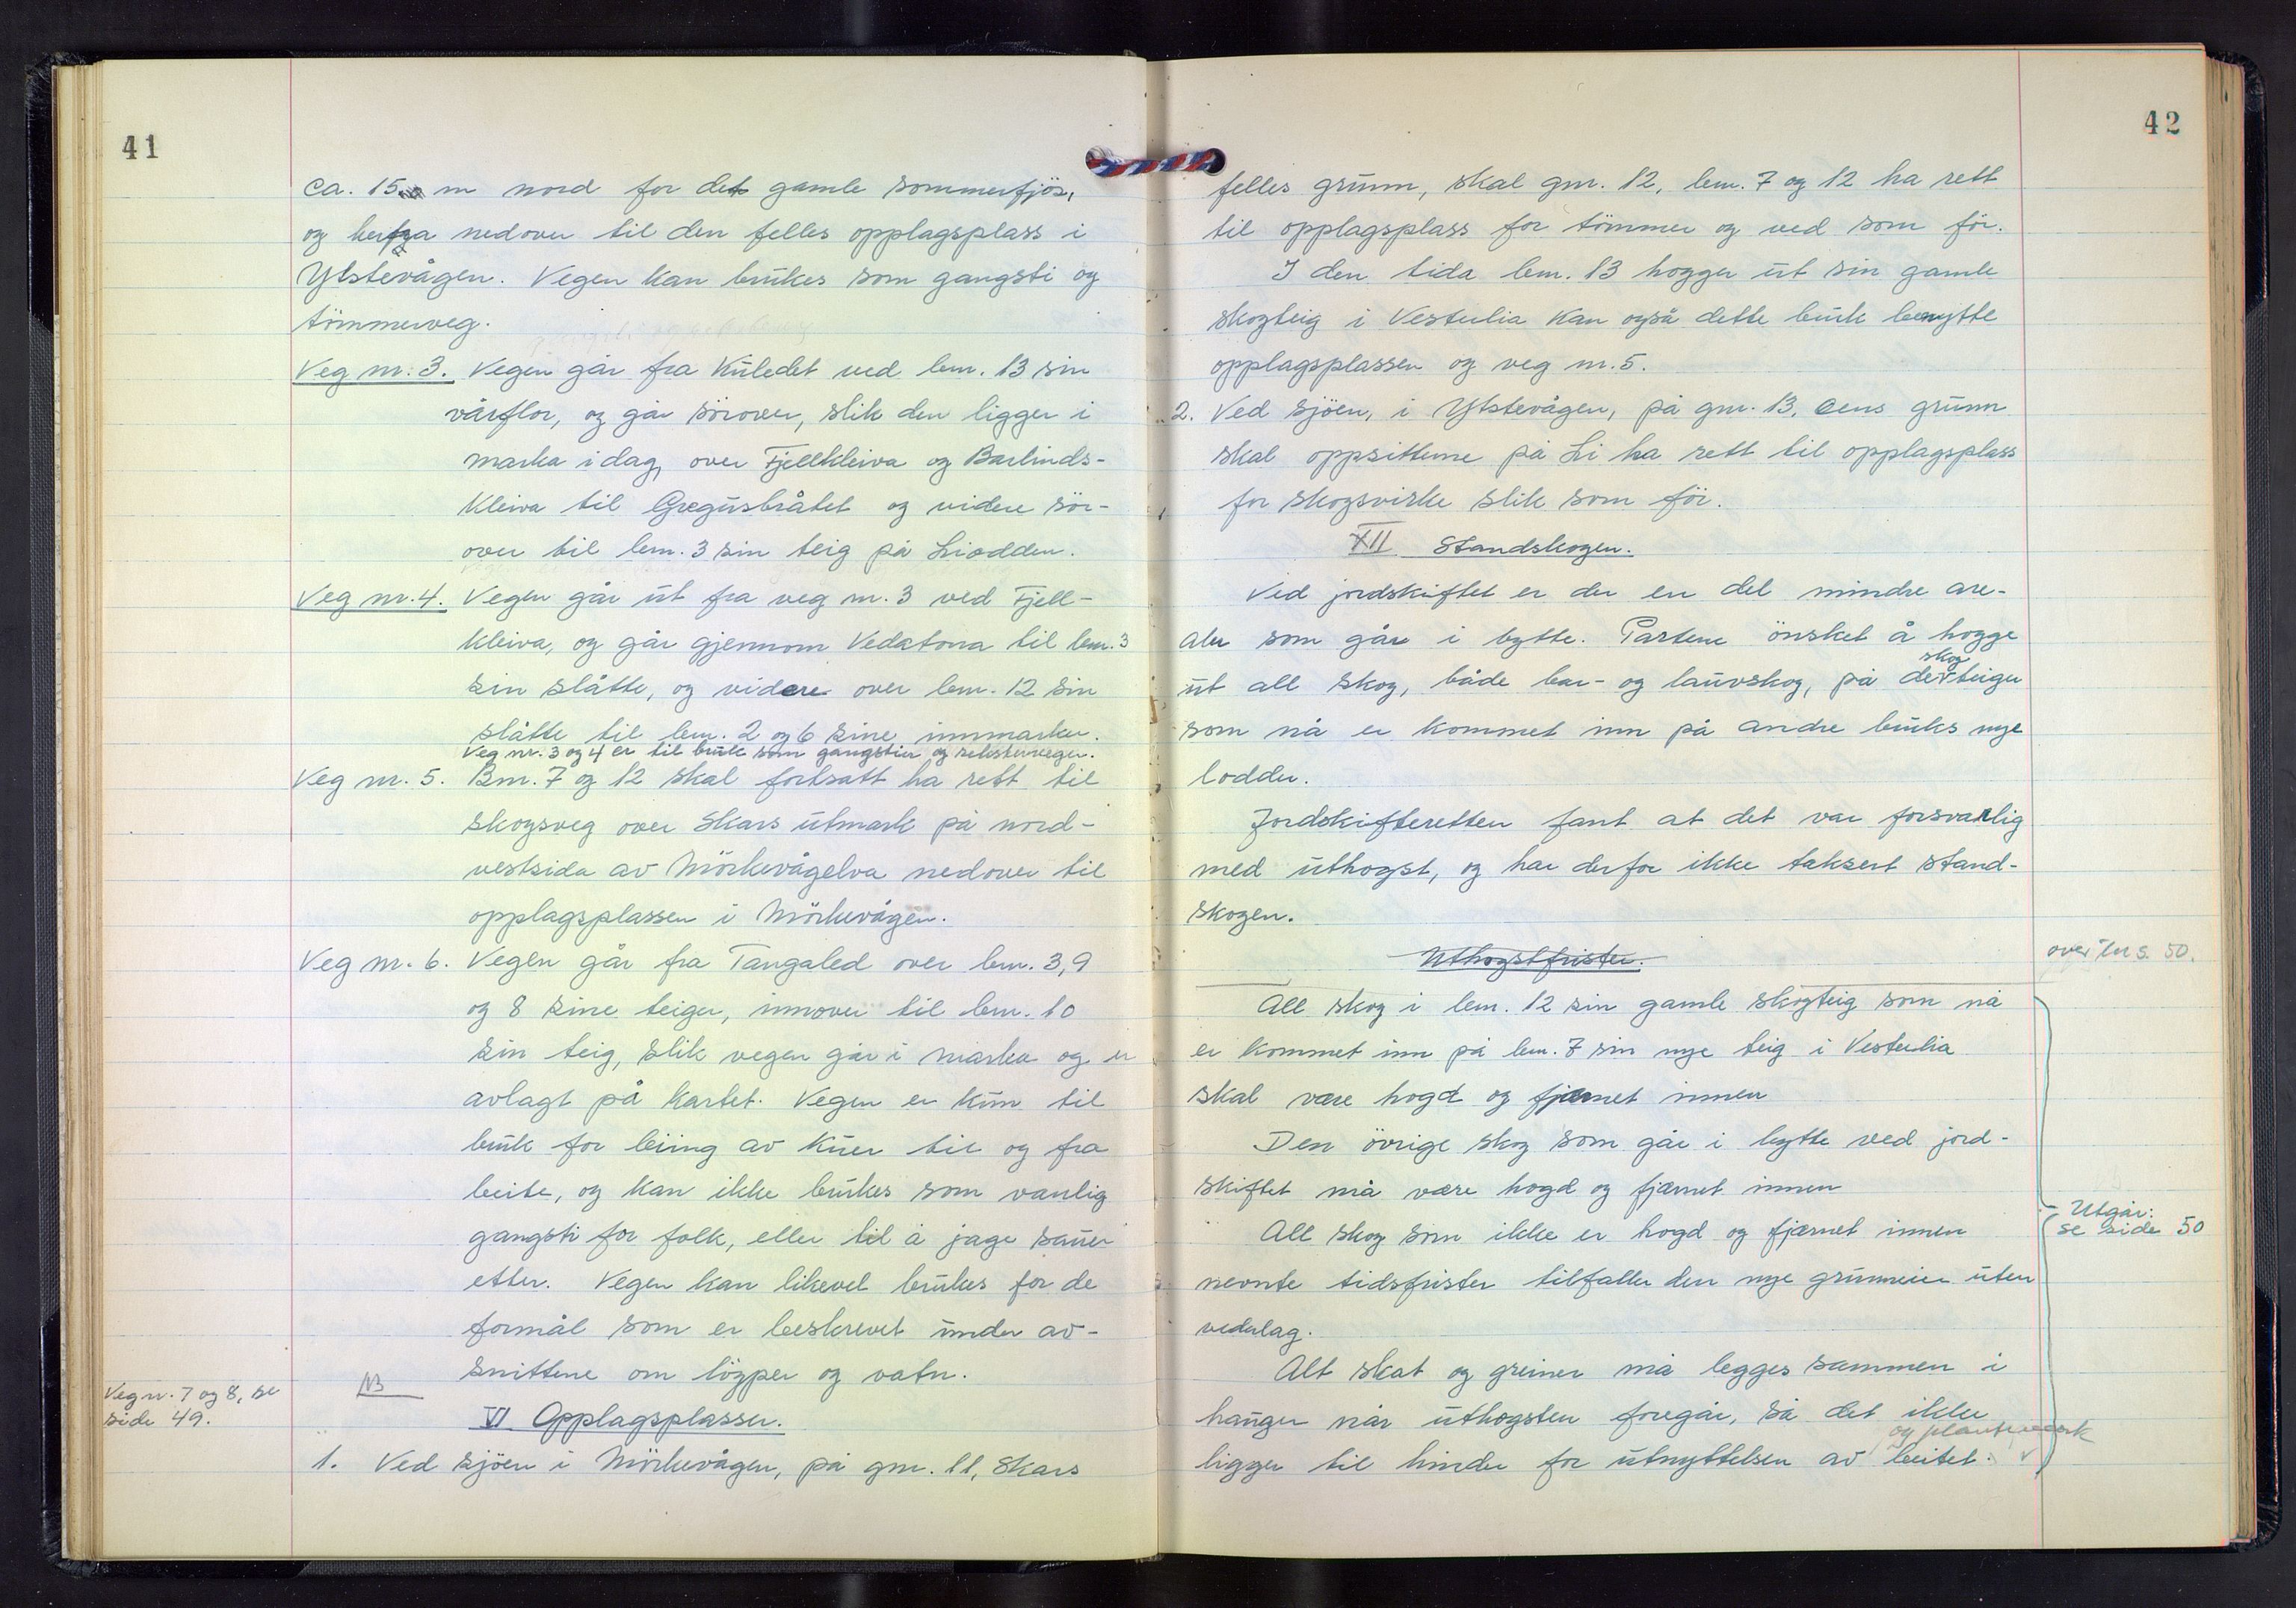 41
ca. 15 m nord for det gamle sommerfjös,
og herfra nedover til den felles opplagsplass i
Ytstevågen. Vegen kan brukes som gangsti og
tömmerveg.
Veg nr. 3. Vegen går fra Kuledet ved bnr. 13 sin
vårflor, og går sörover, slik den ligger i
marka idag, over Fjellkleiva og Barlinds-
kleiva til Gregusbråtet og videre sör-
over til bnr. 3 sin teig på Liodden.
Veg nr. 4. Vegen går ut fra veg nr. 3 ved Fjell-
kleiva, og går gjennom Vedatona til bnr. 3
sin slåtte, og videre over bnr. 12 sin
slåtte til bnr. 2 og 6 sine innmarker.
Veg nr. 3 og 4 er til bruk som gangstier og rekstervegen.
Veg nr. 5. Bnr. 7 og 12 skal fortsatt ha rett til
skogsveg over Skars utmark på nord-
vestsida av Mörkevågelva nedover til
opplagsplassen i Mörkevågen.
Veg nr. 6. Vegen går fra Tangaled over bnr. 3, 9
og 8 sine teiger, innover til bnr. 10
sin teig, slik vegen går i marka og er
avlagt på kartet. Vegen er kun til
bruk for leiing av kuer til og fra
beite, og kan ikke brukes som vanlig
gangsti for folk, eller til å jage sauer
etter. Vegen kan likevel brukes for de
formål som er beskrevet under av-
snittene om löyper og vatn.
Veg nr. 7 og 8, se
side 49.
NB
VI Opplagsplasser.
1. Ved sjöen i Mörkevågen, på gnr. 11, Skars
42
felles grunn, skal gnr. 12, bnr. 7 og 12 ha rett
til opplagsplass for tömmer og ved som för.
I den tida bnr. 13 hogger ut sin gamle
skogteig i Vesterlia kan også dette bruk benytte
opplagsplassen og veg nr. 5.
2. Ved sjöen, i Ytstevågen, på gnr. 13, Aens grunn
skal oppsitterne på Li ha rett til opplagsplass
for skogsvirke slik som för.
XII Standskogen.
Ved jordskiftet er der en del mindre are-
aler som går i bytte. Partene önsket å hogge
skog
ut all skog, både bar- og lauvskog, på de teiger
som nå er kommet inn på andre bruks nye
lodder.
Jordskifteretten fant at det var forsvarlig
med uthogst, og har derfor ikke taksert stand-
skogen.
Uthogstfrister.
over til s. 50.
All skog i bnr. 12 sin gamle skogteig som nå
er kommet inn på bnr. 7 sin nye teig i Vesterlia
skal være hogd og fjærnet innen
Den övrige skog som går i bytte ved jord-
skiftet må være hogd og fjærnet innen
Utgår:
se side 50
All skog som ikke er hogd og fjærnet innen
nevnte tidsfrister tilfaller den nye grunneier uten
vederlag.
Alt skat og greiner må legges sammen i
hauger når uthogsten foregår, så det ikke
og plantemark
ligger til hinder for utnyttelsen av beitet.